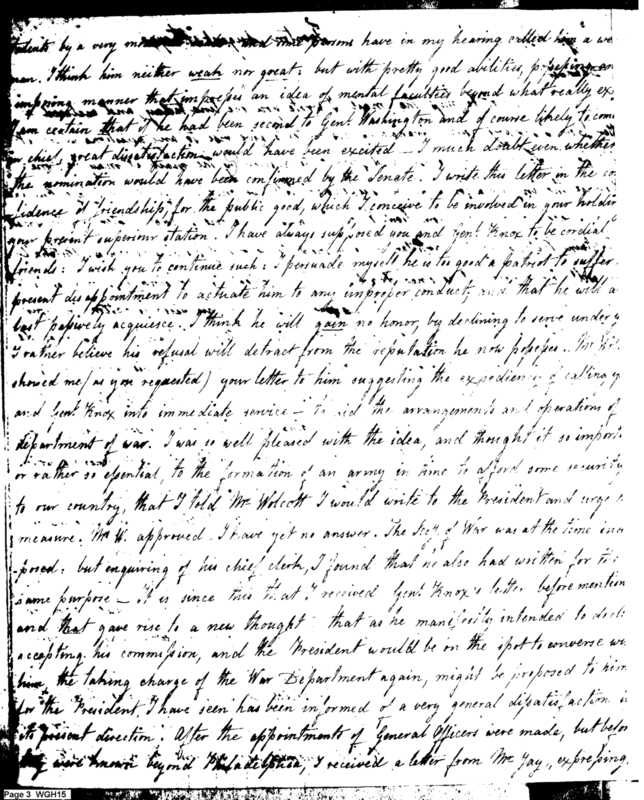 talents by a very and some persons have in my hearing called him a we
man. I think him neither weak nor great: but with pretty good abilities, possessing an
imposing manner that impresses an idea of mental faculties beyond what really ex
I am certain that if he had been second to Genl. Washington and of course likely to com
in chief, great dissatisfaction would have been excited — I much doubt even whether
the nomination would have been confirmed by the Senate. I write this letter in the con
fidence of friendship, for the public good, which I conceive to be involved in your holding
your present superiour station. I have always supposed you and Genl. Knox to be cordial
friends: I wish you to continue such: I persuade myself he is too good a patriot to suffer
present disappointment to actuate him to any improper conduct, and that he will a
last passively acquiesce. I think he will gain no honor, by declining to serve under y
I rather believe his refusal will detract from the reputation he now possesses. Mr. Wol
showed me (as you requested) your letter to him suggesting the expediency of calling y
and Genl. Knox into immediate service — to aid the arrangements and operations of
department of war. I was so well pleased with the idea, and thought it so import
or rather so essential, to the formation of an army in time to afford some security
to our country, that I told Mr. Wolcott I would write to the President and urge
measure. Mr. W. approved. I have yet no answer. The Secy. of War was at the time indis
posed: but enquiring of his chief clerk, I found that he also had written for the
same purpose — It is since this that I received Genl. Knox's letter before mention
and that gave rise to a new thought that as he manifestly intended to decli
accepting his commission, and the President would be on the spot to converse wi
him, the taking charge of the War Department again, might be proposed to him
for the President, I have seen has been informed of a very general dissatisfaction i
its present direction. After the appointments of General Officers were made, but befor
they were known beyond Philadelphia, I received a letter from Mr. Jay, expressing
Page 3 WGH15